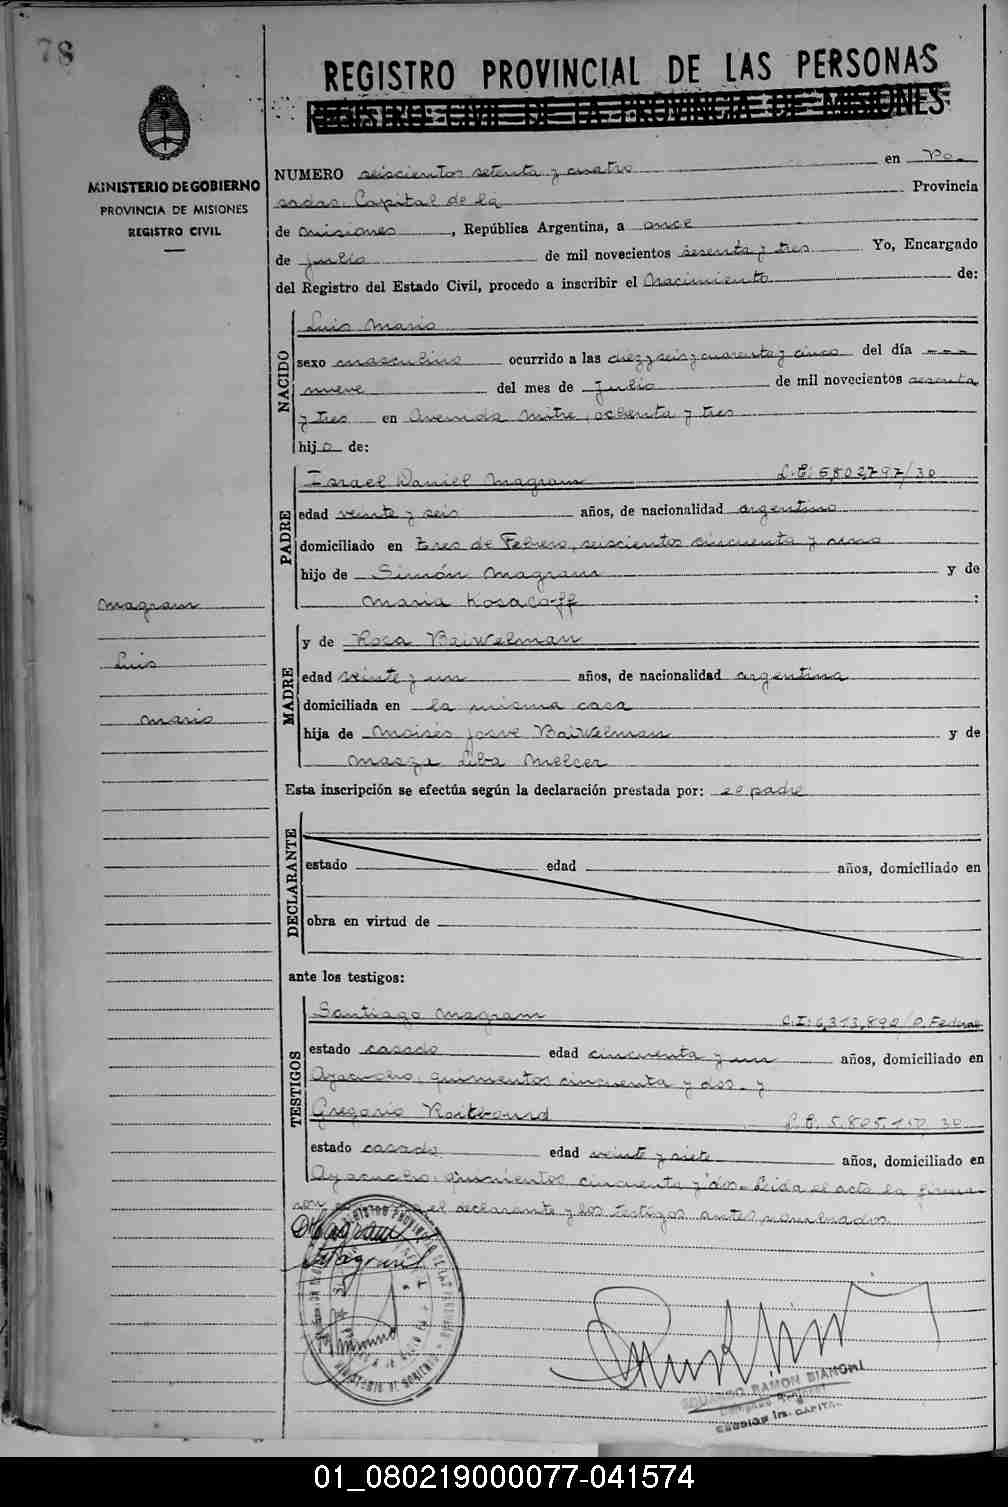 78
REGISTRO PROVINCIAL DE LAS PERSONAS
REGISTRO CIVIL DE LA PROVINCIA DE MISIONES
MINISTERIO DE GOBIERNO
PROVINCIA DE MISIONES
REGISTRO CIVIL
NUMERO seiscientos setenta y cuatro en Po-
sadas Capital de la Provincia
de Misiones, República Argentina, a once
de julio de mil novecientos sesenta y tres Yo, Encargado
del Registro del Estado Civil, procedo a inscribir el Nacimiento de:
NACIDO
Luis Mario
sexo masculino ocurrido a las diez y seis y cuarenta y cinco del día ---
nueve del mes de julio de mil novecientos sesenta
y tres en Avenida Mitre, ochenta y tres
hijo de:
PADRE
Israel Daniel Magram
edad veinte y seis años, de nacionalidad argentino
domiciliado en tres de Febrero, seiscientos cincuenta y
hijo de Simón Magram y de
Maria Kosacoff :
MADRE
y de Rosa Baiwelman
edad veinte y un años, de nacionalidad argentina
domiciliada en la misma casa
hija de Moisés Josve Baiwelman y de
Masza Liba Melcer
Magram
Luis
Mario
Esta inscripción se efectúa según la declaración prestada por: el padre
DECLARANTE
estado edad años, domiciliado en
obra en virtud de
ante los testigos:
TESTIGOS
Santiago Magram C.I: 6,313,890/P. Federal
estado casado edad cincuenta y un años, domiciliado en
Ayacucho, quinientos cincuenta y dos- y
Gregorio
estado casado edad veinte y siete años, domiciliado en
Ayacucho, quinientos cincuenta y dos- Leida el acta la firma-
ron el declarante y los testigos antes nombrados
EDUARDO RAMON BIANCHI
CAPITAL
01_080219000077-041574